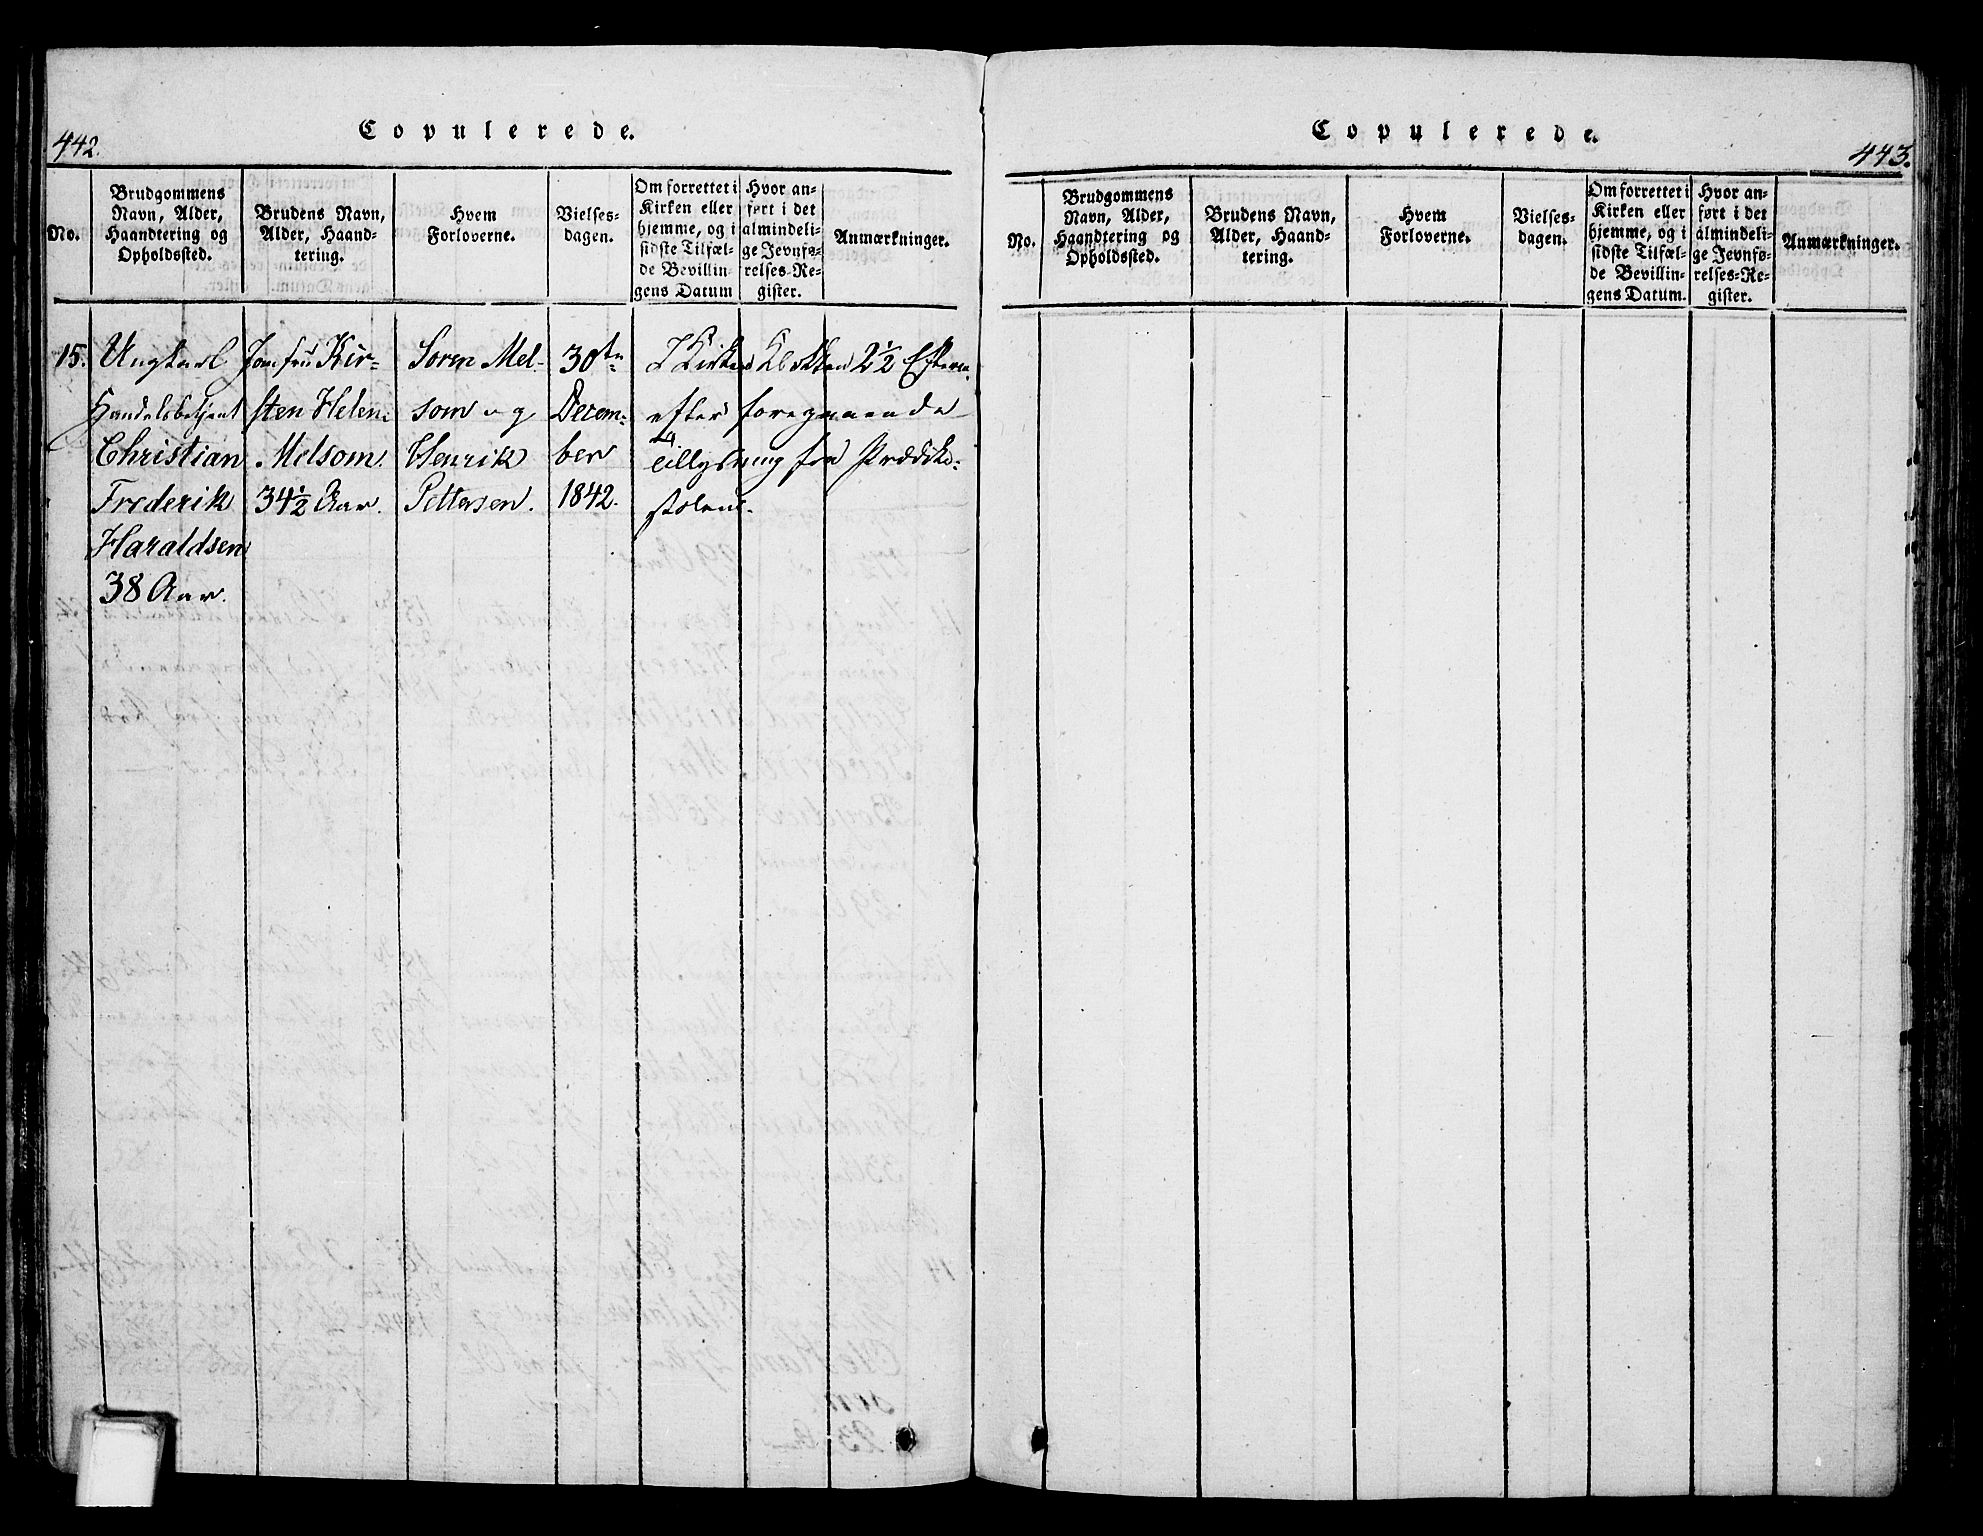 442.
Copulerede.
No.
Brudgommens
Navn, Alder,
Haandtering og
Opholdssted.
Brudens Navn,
Alder, Haand-
tering.
Hvem
Forloverne.
Vielses-
dagen.
Om forrettet i
Kirken eller
hjemme, og i
sidste Tilfæl-
de Bevillin-
gens Datum
Hvor an-
ført i det
almindeli-
ge Jevnfø-
relses-Re-
gister.
Anmærkninger.
15.
Ungkarl
Handelsbetjent
Christian
Frederik
Haraldsen
38 Aar.
Jomfru Kir-
sten Helene
Melsom.
34½ Aar.
Soren Mel-
som og
Henrik
Pettersen.
30te
Decem-
ber
1842.
I Kirken Klokken 2½ Efterm.
efter foregaaende
Tillysning fra Prædike-
stolen.
Copulerede.
443.
No.
Brudgommens
Navn, Alder,
Haandtering og
Opholdssted.
Brudens Navn,
Alder, Haand-
tering.
Hvem
Forloverne.
Vielses-
dagen.
Om forrettet i
Kirken eller
hjemme, og i
sidste Tilfæl-
de Bevillin-
gens Datum.
Hvor an-
ført i det
almindeli-
ge Jevnfø-
relses-Re-
gister.
Anmærkninger.